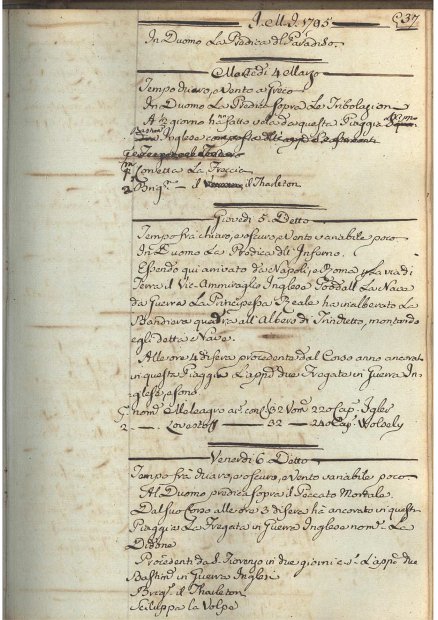 1795 237
In Duomo La Predica del Paradiso.
Martedì 4 Marzo
Tempo chiaro, e Vento a Greco
In Duomo La Predica sopra Le Tribolazioni
A ½ giorno han fatto vela da questa Piaggia
Inglese
Corvetta La Freccia
2 Brig.ⁿ il il Tharleton
Giovedì 5. Detto
Tempo frà chiaro, e oscuro, e Vento variabile poco
In Duomo La Predica dell Inferno.
Essendo qui arrivato da Napoli, e Roma p La via di
Terra il Vice-Ammiraglio Inglese Goddall La Nave
da Guerra La Principessa Reale ha inalberato La
Bandiera quadra all'Albero di Trinchetto, montando
egli detta Nave.
Alle ore 4 di sera procedenti dal Corso anno ancorat
in questa Piaggia due Fregate in Guerra In-
glesi, e sono
nom.ᵉ Meleagro 32 Vom. 220 Cap.
2 32 Cap.
Venerdì 6 Detto
Tempo frà chiaro, e oscuro, e Vento variabile poco
Al Duomo predica sopra il Peccato Mortale.
Dal suo Corso alle ore 3 di sera hà ancorato in questa
Piaggia La Fregata in Guerra Inglese nom. La
Didone
Procedenti da S. Fiorenzo in due giorni due
Bastim.ⁱ in Guerra Inglesi
Brig.ⁿ il Tharleton
Sciluppa la Volpe